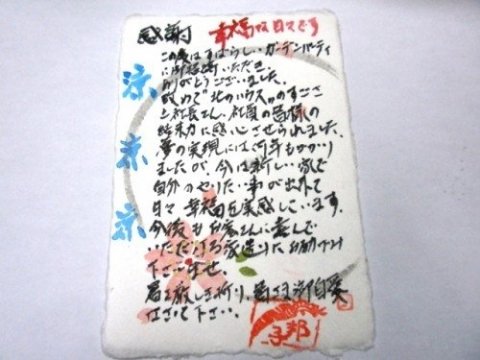 感謝 幸福な日々です
この度はすばらしいガーデンパーティ
に御招待いただき、
ありがとうございました。
改めて"北のハウス"のすごさ
と社長さん、社員の皆様の
結束力に感心させられました。
夢の実現には何年もかかり
ましたが、今は新しい家で
自分のやりたい事が出来て
日々幸福を実感しています。
今後もお客さんに喜んで
いただける家造りにお励み
下さいませ。
暑さ厳しき折り、皆さま御自愛
なさって下さい。
涼
涼
涼
邦子